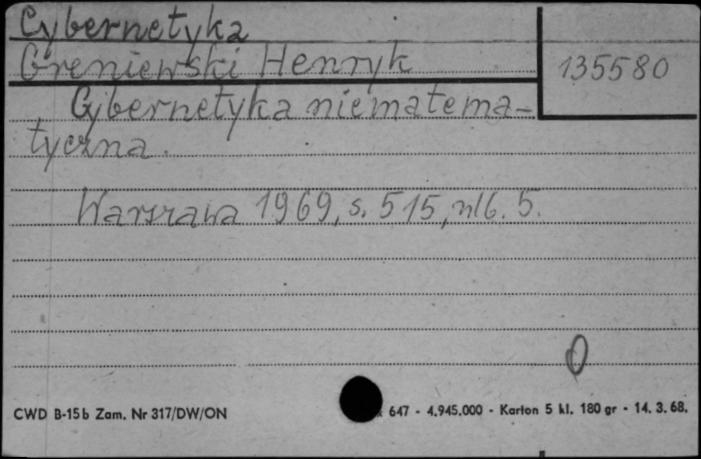 Cybernetyka
Greniewski Henryk
135580
Cybernetyka niematema-
tyczna.
Warszawa 1969, s. 515, nlb. 5.
0
CWD B-15b Zam. Nr 317/DW/ON
647 - 4.945.000 - Karton 5 kl. 180 gr - 14. 3. 68.